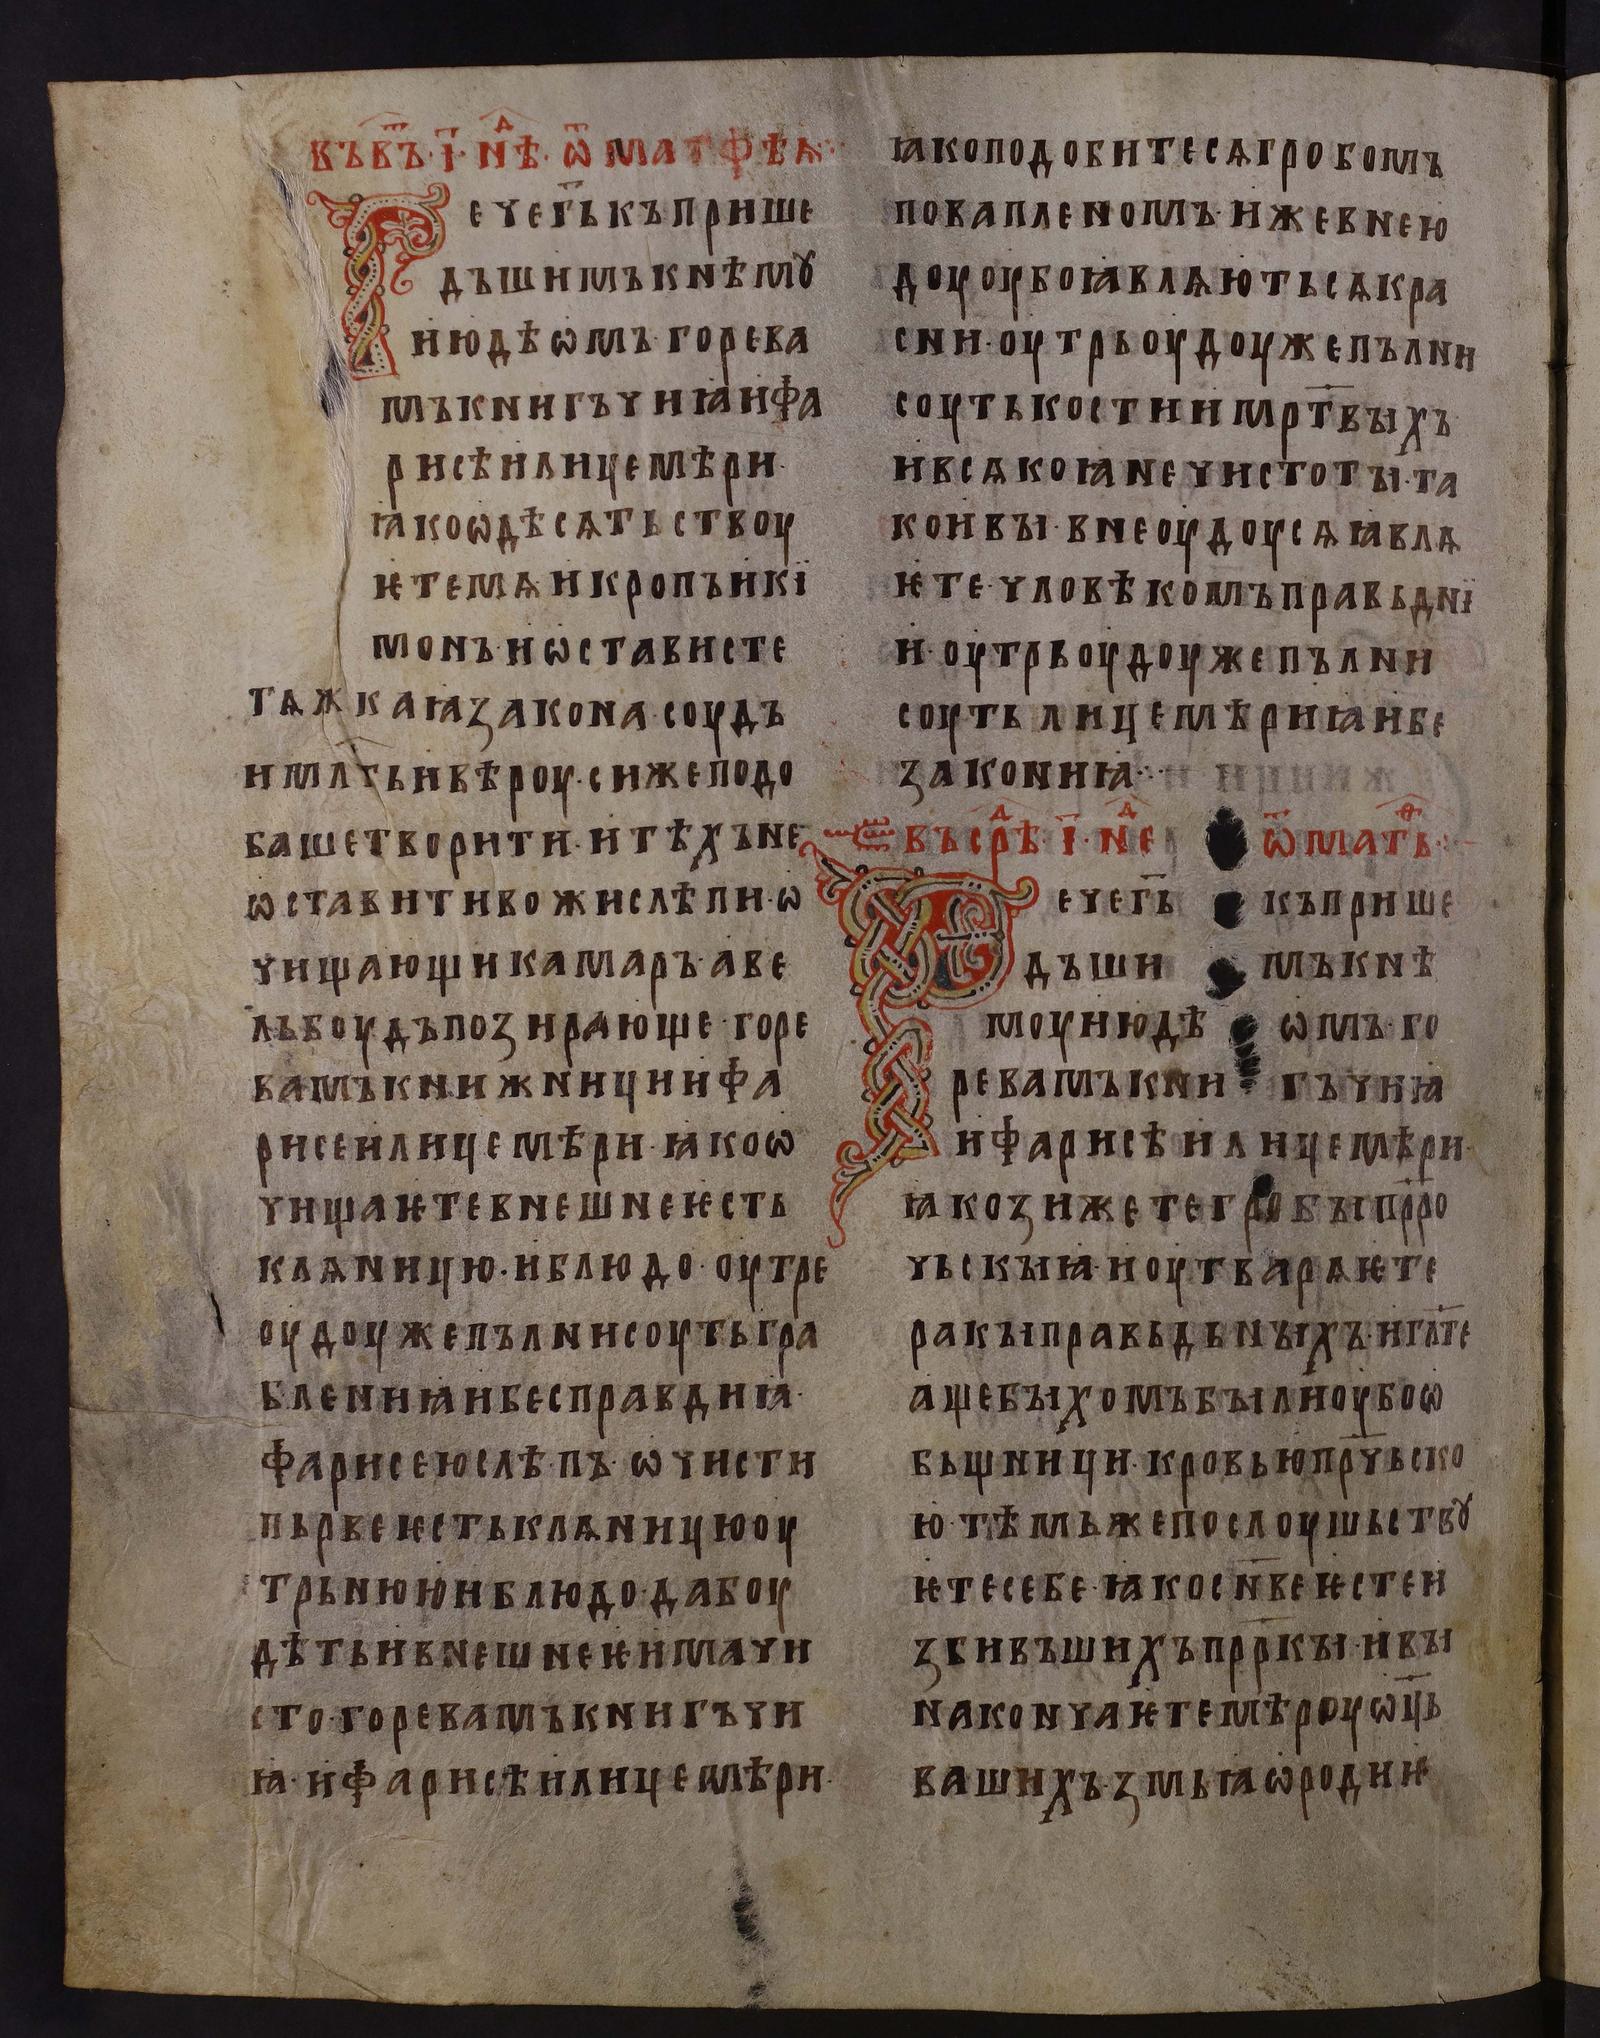 във҃т·і҃·нѣ҃д·ѿматфѣꙗ·
Речег҃ькъприше
дъшимъкнѣмꙋ
июдѣѡмъ·горева
мъкнигъчиꙗифа
рисѣилицемѣри·
ꙗкоѡдѣсѧтьствоу
ѥтемѧтикропъикї
монъ·иѡстависте
тѧжкаꙗзакона·соудъ
имл҃тьивѣроу·сижеподо
башетворити·итѣхъне
ѡставитивожислѣпи·ѡ
чищающикамаръ·аве
льбоудъпозирающе·горе
вамъкнижнициифа
рисеилицемѣри·ꙗкоѡ
чищаѥтевнешнеѥсть
клѧницю·иблюдо·оутре
оудоужепълнисоутьгра
блениꙗибесправдиꙗ·
фарисеюслѣпъ·ѡчисти
пьрвеѥстьклѧницюоу
трьнююиблюдо·дабоу
дѣтьивнешнеѥимачи
сто·горевамъкнигъчи
ꙗ·ифарисѣилицемѣри·
ꙗкоподобитесѧгробомъ
повапленомъ·ижевнею
доуоубоꙗвлѧютьсѧкра
сни·оутрьоудоужепълни
соутькостиимрт҃выхъ
ивсѧкоꙗнечистоты·та
коивы·внеоудоусѧꙗвлѧ
ѥте·чловѣкомъправьднї
и·оутрьоудоужепълни
соутьлицемѣриꙗибе
закониꙗ··
въср҃дѣ·і҃·не҃д ѿмат҃ѳ·
Речег҃ь къприше
дъши мъкнѣ
моуиюдѣ ѡмъ·го
ревамъкни гъчиꙗ
ифарисѣилицемѣри·
ꙗкозижетегробыпр҃ро
чьскыꙗ·иоутварѧѥте
ракыправьдьныхъ·игл҃те
ащебыхомъбылиоубоѡ
бьщници·кровьюпр҃чьско
ю·тѣмьжепослоушьствꙋ
ѥтесебе·ꙗкосн҃веѥстеи
збившихъпрр҃кы·ивы
наконча́ѥтемѣроуѡц҃ь
вашихъ·змьꙗѡродиѥ